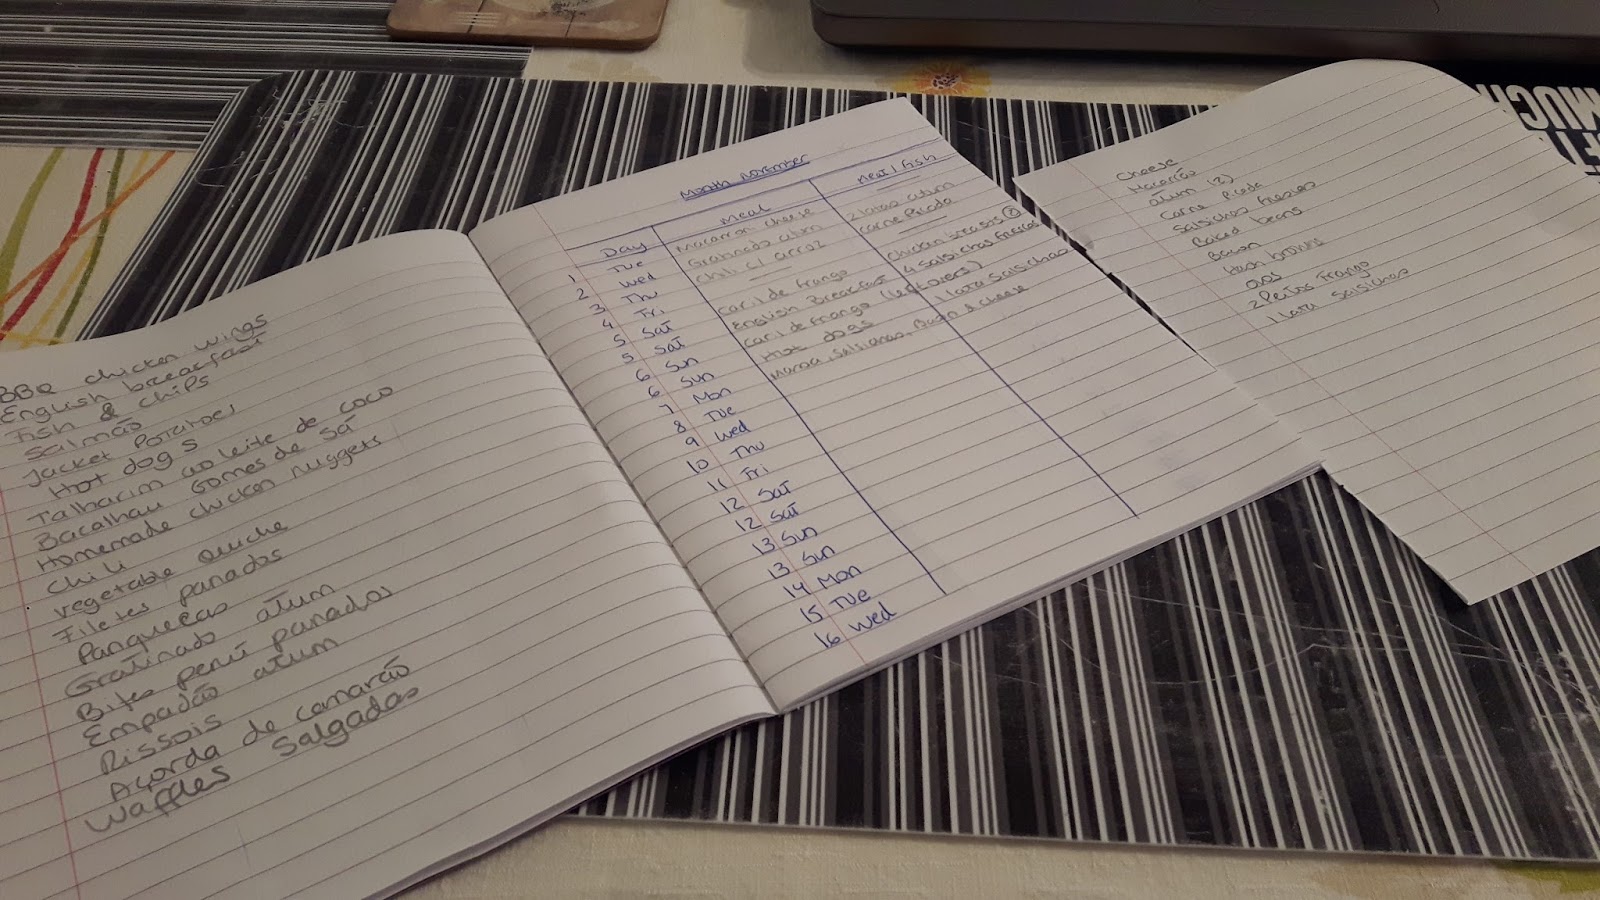 BBQ chicken wings
English breakfast
Fish & chips
Salmão
Jacket Potatoes
Hot dogs
Talharim ao leite de coco
Bacalhau Gomes de Sá
Homemade chicken nuggets
Chili
vegetable Quiche
Filetes panados
Panquecas
Gratinado atum
Bifes perú panados
Empadão atum
Rissois
Açorda de camarão
Waffles Salgadas
Month November
Day Meal Meat / fish
1 Tue Macaroni cheese
2 Wed Gratinado atum 2 latas atum
3 Thu Chili c/ arroz Carne Picada
4 Fri
5 Sat Caril de frango Chicken breasts 2
5 Sat English Breakfast 4 Salsichas Frescas
6 Sun Caril de Frango (leftovers)
6 Sun Hot dogs 1 lata Salsichas
7 Mon Massa, Salsichas, Bacon & cheese
8 Tue
9 Wed
10 Thu
11 Fri
12 Sat
12 Sat
13 Sun
13 Sun
14 Mon
15 Tue
16 Wed
Cheese
Macarrão
atum (2)
Carne Picada
Salsichas Frescas
Baked beans
Bacon
Hash browns
ovos
2 Peitos Frango
1 lata Salsichas
MUCH